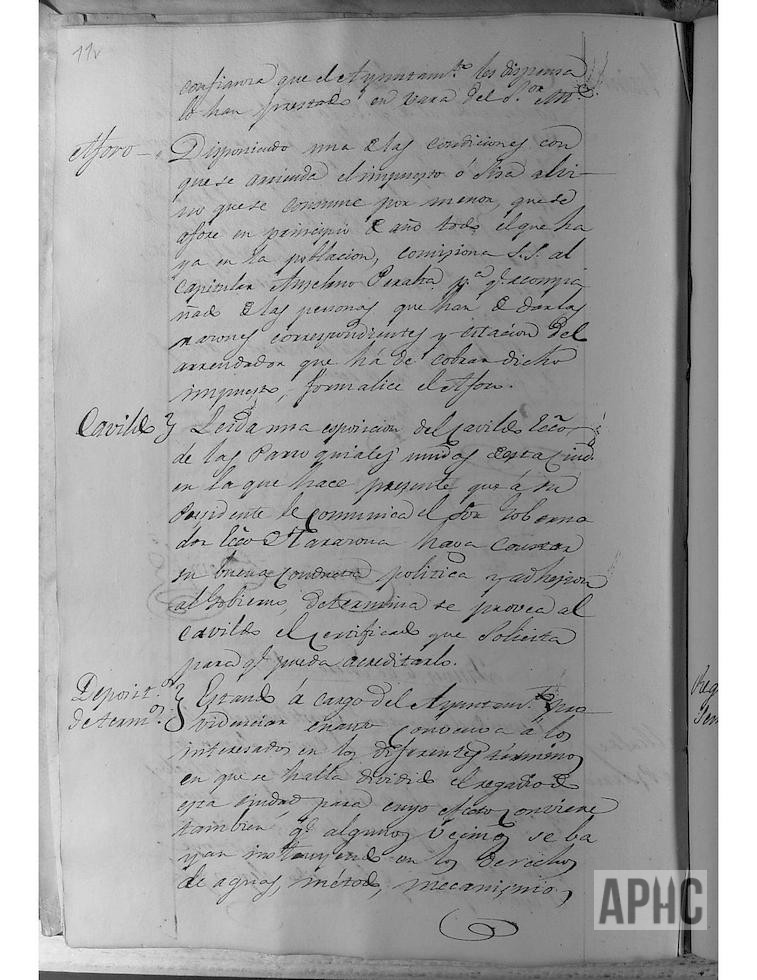 11v
confianza que el Ayuntam.to les dispensa
lo han prestado en vara del S.or Alc.e
Aforo
Disponiendo una de las condiciones con
que se arrienda el impuesto ó sisa al vi-
no que se consume por menor, que se
afore en principio de año todo el que ha
ya en la poblacion, comisiona S.S. al
capitular Anselmo Peralta p.a q.e acompa
ñado de las personas que han de dar las
razones correspondientes y citacion del
arrendador que há de cobrar dicho
impuesto, formalice el Aforo.
Cavildo
Leida una esposicion del Cavildo Ecco
de las Parroquiales unidas de esta Ciud.
en la que hace presente que á su
Presidente le comunica el Sor Goberna
dor Ecco de Tarazona haga constar
su buena conducta politica y adhesion
al Gobierno, determina se provea al
cavildo el certificado que solicita
para q.e pueda acreditarlo.
Deposit.
de team.
Estando á cargo del Ayuntam.to pro
videnciar cuanto convenga á los
interesados en los diferentes términos
en que se halla dividido el regadio de
esta ciudad, para cuyo efecto conviene
tambien q.e algunos vecinos se ba
yan instruyendo en los derechos
de aguas, método, mecanismo,
APHC